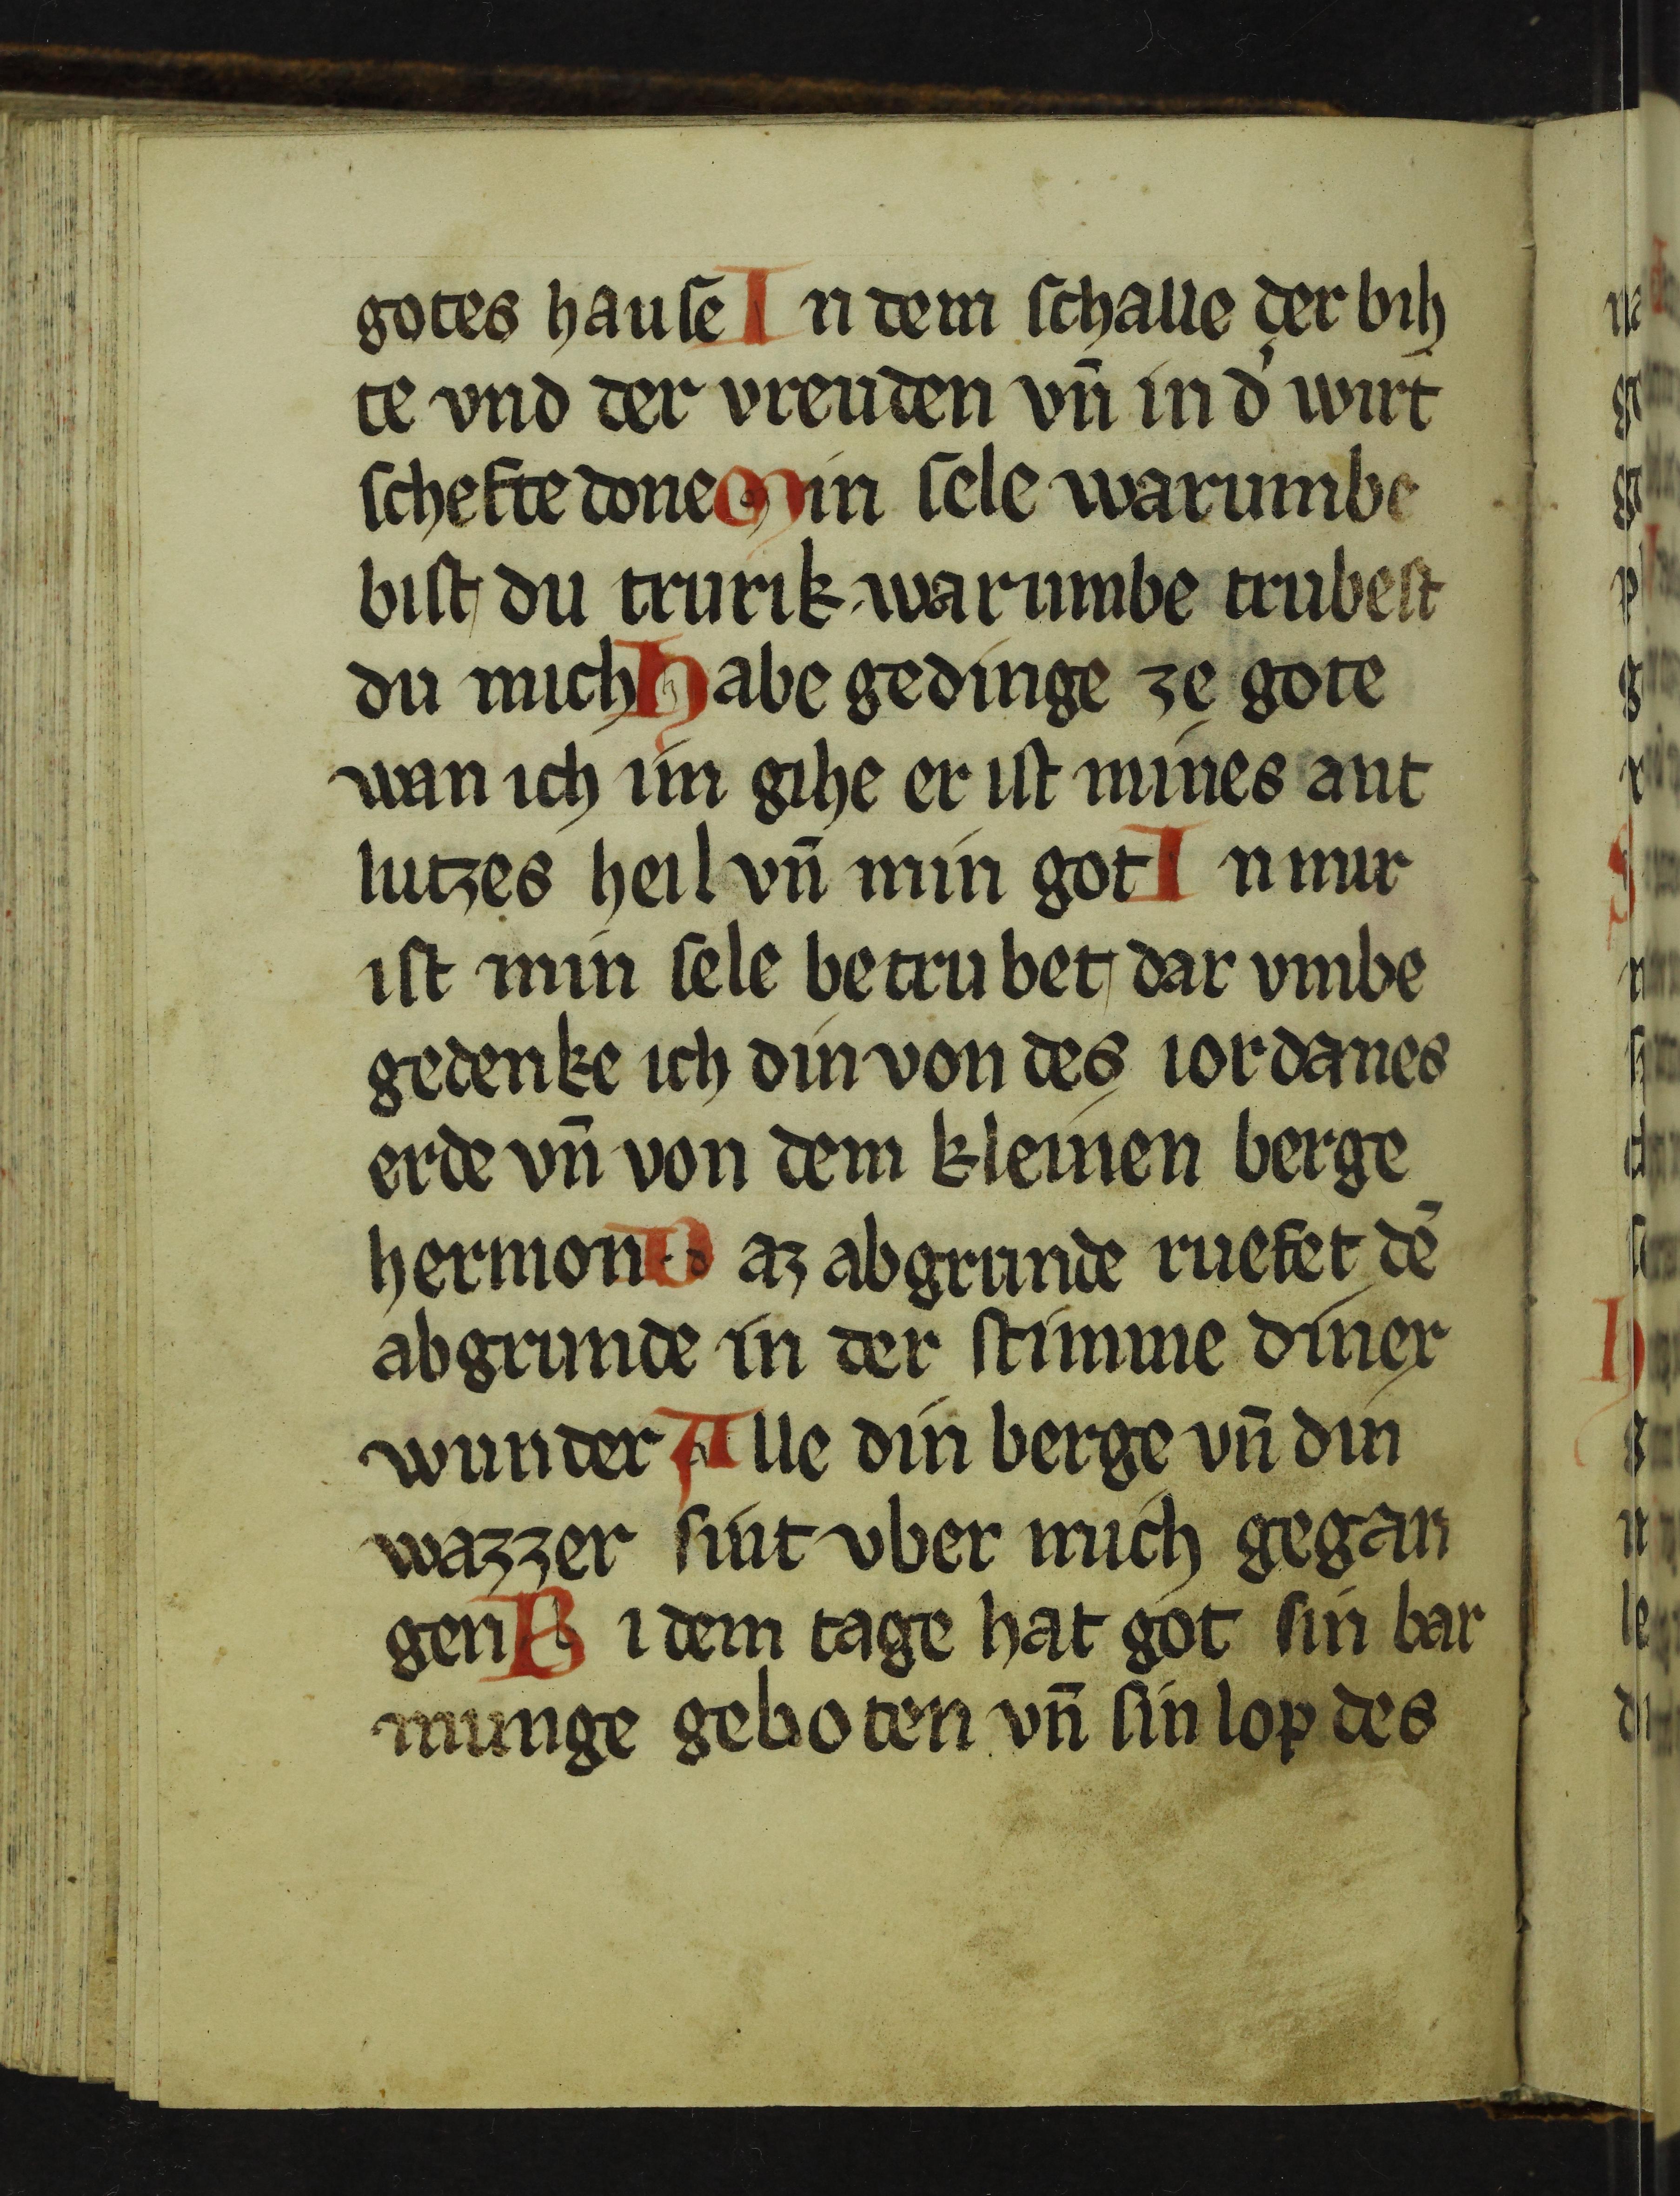 gotes hauſe In dem ſchalle der bih
te vnd der vreuden vn̄ in d' wirt
ſchefte done Min ſele warumbe
biſt du trurik warumbe trubeſt
du mich Habe gedinge ze gote
wan ich im gihe er iſt mines ant
lutzes heil vn̄ min got In mir
iſt min ſele betrubet dar vmbe
gedenke ich din von des iordanes
erde vn̄ von dem kleinen berge
hermon Daz abgrunde ruefet dē
abgrunde in der ſtimme diner
wunder Alle din berge vn̄ din
wazzer ſint vber mich gegan
gen Bi dem tage hat got ſin bar
munge geboten vn̄ ſin lop des